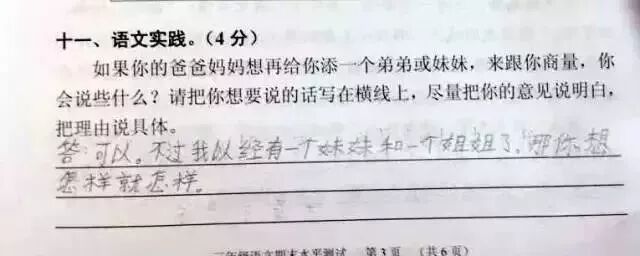 十一、语文实践。(4分)
如果你的爸爸妈妈想再给你添一个弟弟或妹妹,来跟你商量,你
会说些什么?请把你想要说的话写在横线上,尽量把你的意见说明白,
把理由说具体。
答:可以。不过我以经有一个妹妹和一个姐姐了,那你想
怎样就怎样。
三年级语文期末水平测试 第3页 (共6页)